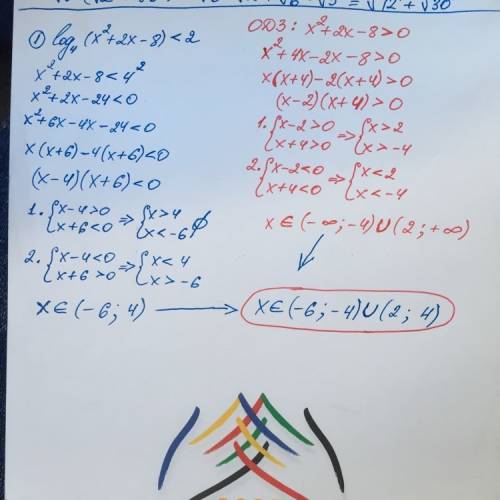 ① log₄(x²+2x-8)<2
x²+2x-8<4²
x²+2x-24<0
x²+6x-4x-24<0
x(x+6)-4(x+6)<0
(x-4)(x+6)<0
1. {x-4>0 x+6<0 ⇒ {x>4 x<-6 ∅
2. {x-4<0 x+6>0 ⇒ {x<4 x>-6
x∈(-6; 4)
ОДЗ: x²+2x-8>0
x²+4x-2x-8>0
x(x+4)-2(x+4)>0
(x-2)(x+4)>0
1. {x-2>0 x+4>0 ⇒ {x>2 x>-4
2. {x-2<0 x+4<0 ⇒ {x<2 x<-4
x∈(-∞;-4)∪(2;+∞)
x∈(-6;-4)∪(2; 4)